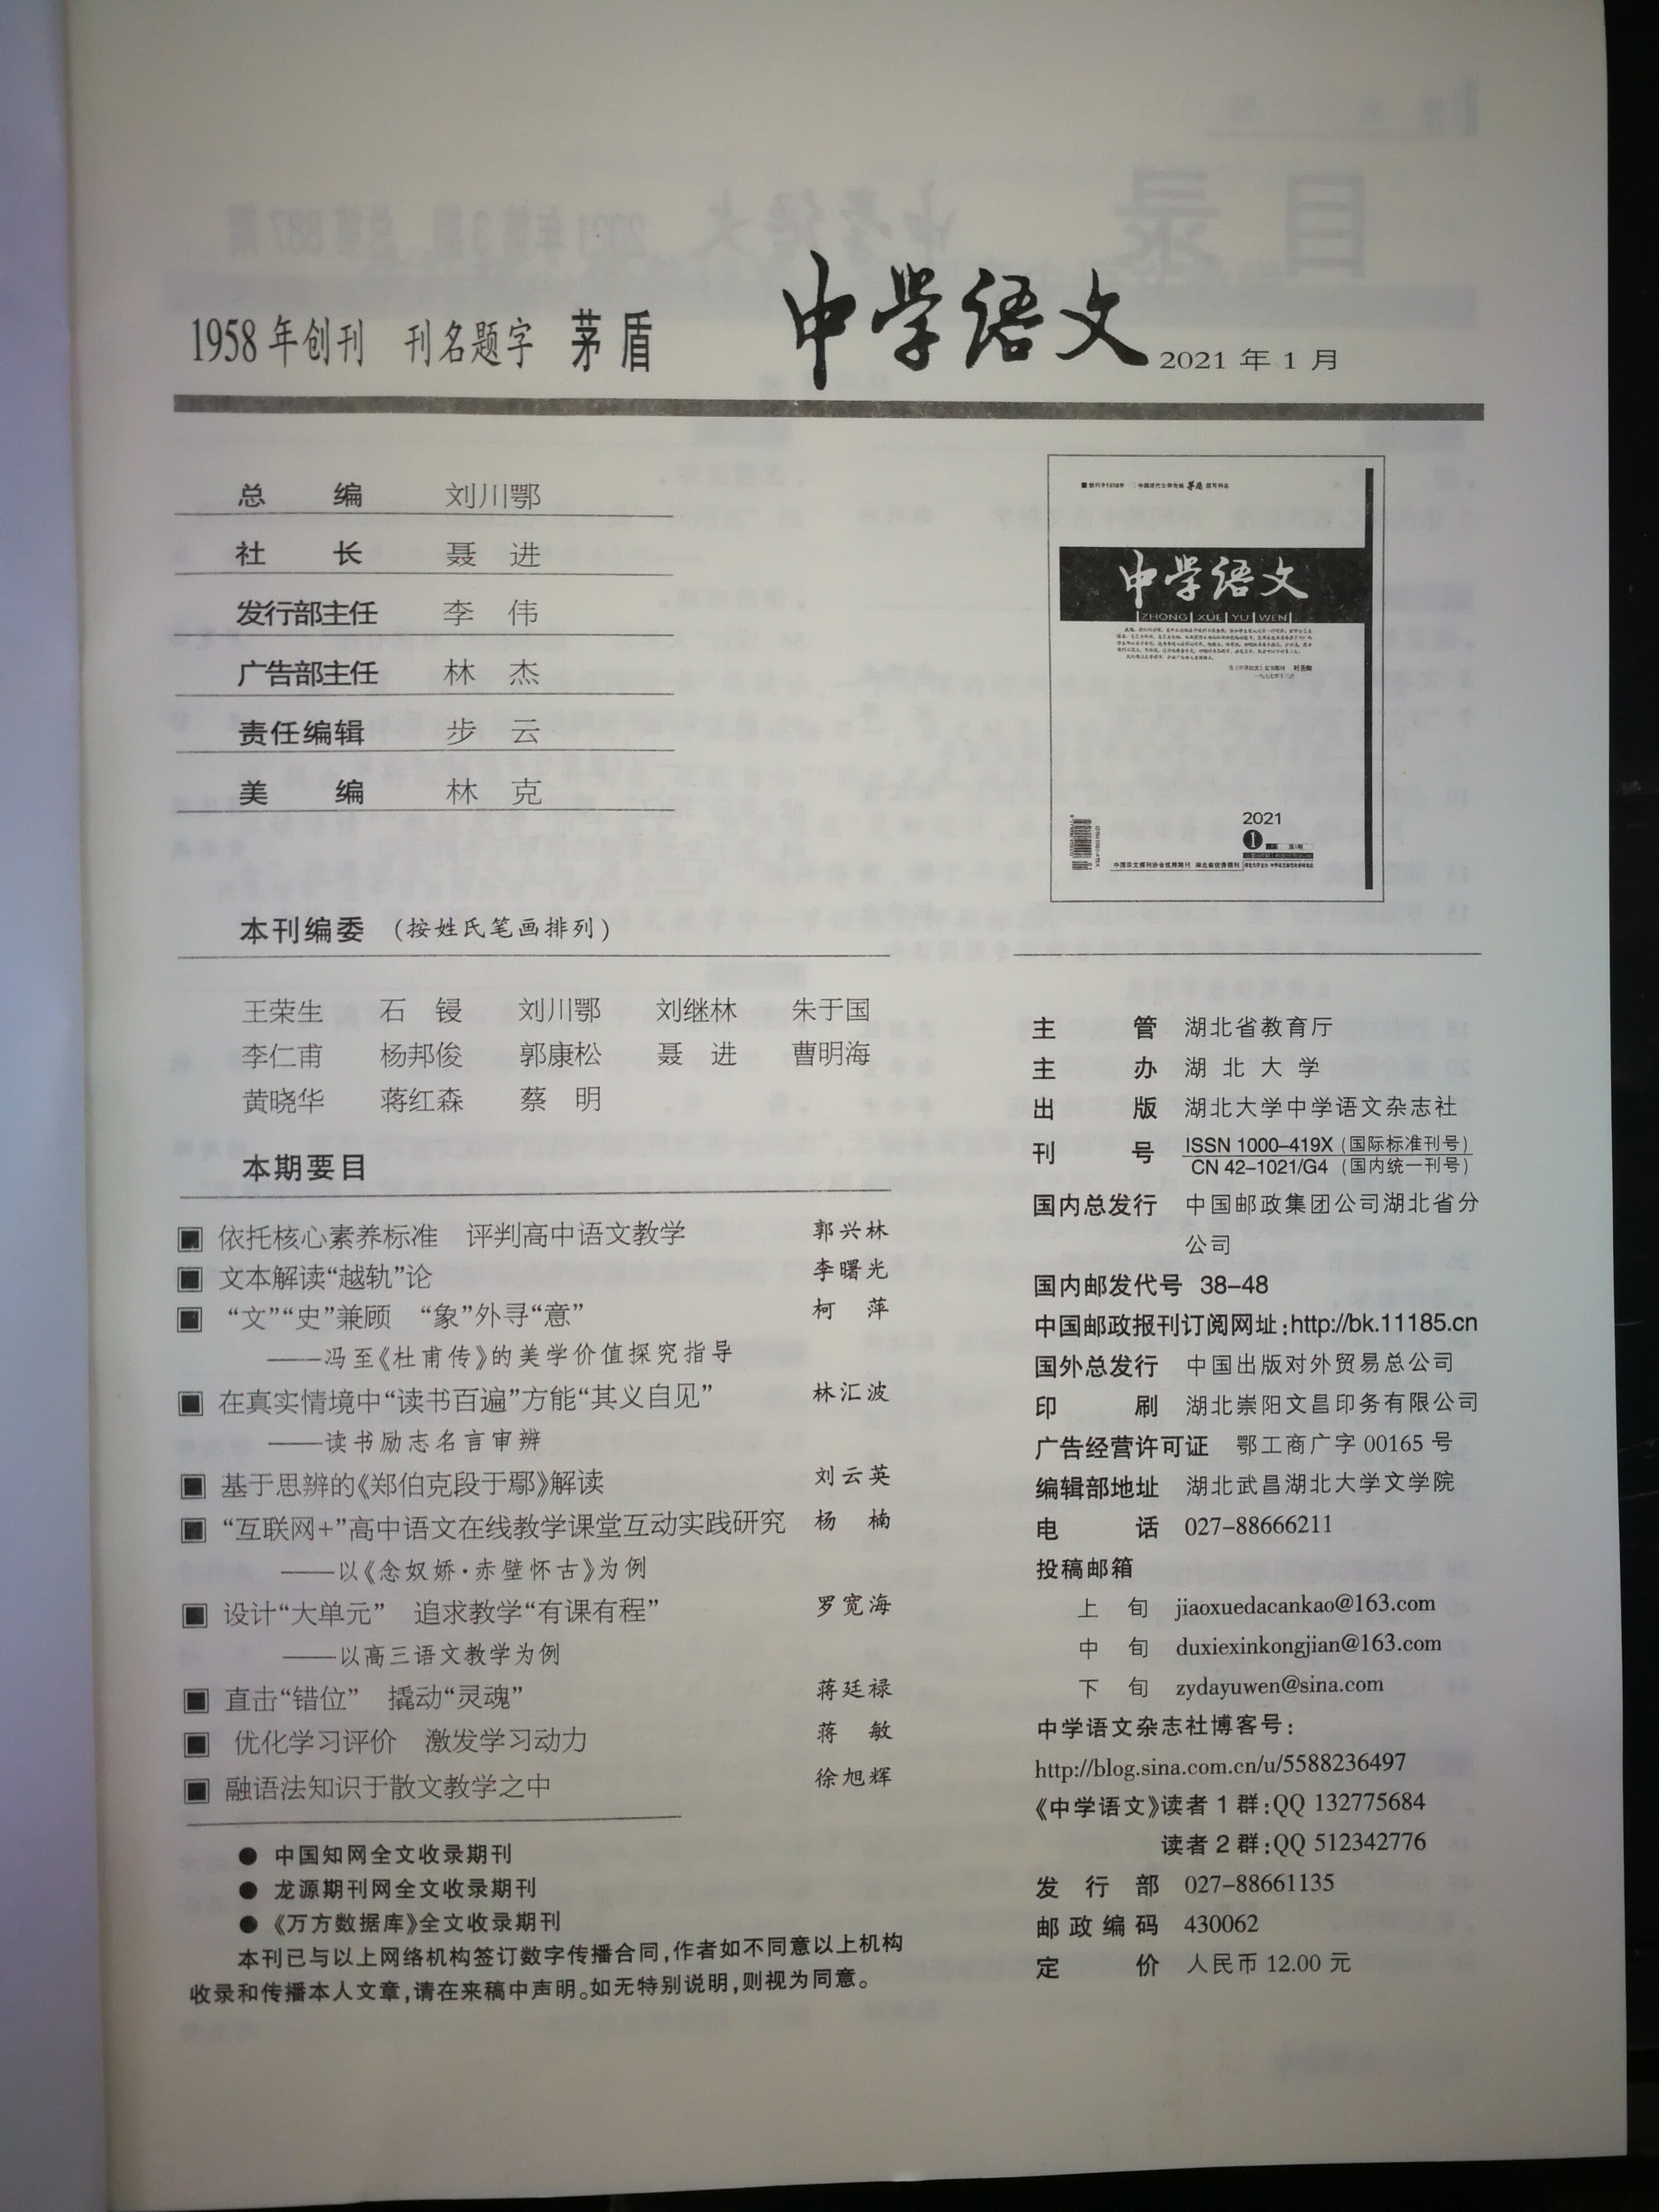 1958年创刊 刊名题字 茅盾 中学语文 2021 年 1 月
总 编 刘川鄂
社 长 聂 进
发行部主任 李 伟
广告部主任 林 杰
责任编辑 步 云
美 编 林 克
中学语文
ZHONG XUE YU WEN
2021
本刊编委 (按姓氏笔画排列)
王荣生 石 锓 刘川鄂 刘继林 朱于国
李仁甫 杨邦俊 郭康松 聂 进 曹明海
黄晓华 蒋红森 蔡 明
本期要目
依托核心素养标准 评判高中语文教学 郭兴林
文本解读“越轨”论 李曙光
“文”“史”兼顾 “象”外寻“意” 柯 萍
——冯至《杜甫传》的美学价值探究指导
在真实情境中“读书百遍”方能“其义自见” 林汇波
——读书励志名言审辨
基于思辨的《郑伯克段于鄢》解读 刘云英
“互联网+”高中语文在线教学课堂互动实践研究 杨 楠
——以《念奴娇·赤壁怀古》为例
设计“大单元” 追求教学“有课有程” 罗宽海
——以高三语文教学为例
直击“错位” 撬动“灵魂” 蒋廷禄
优化学习评价 激发学习动力 蒋 敏
融语法知识于散文教学之中 徐旭辉
● 中国知网全文收录期刊
● 龙源期刊网全文收录期刊
● 《万方数据库》全文收录期刊
本刊已与以上网络机构签订数字传播合同,作者如不同意以上机构
收录和传播本人文章,请在来稿中声明。如无特别说明,则视为同意。
主 管 湖北省教育厅
主 办 湖 北 大 学
出 版 湖北大学中学语文杂志社
刊 号 ISSN 1000-419X (国际标准刊号)
CN 42-1021/G4 (国内统一刊号)
国内总发行 中国邮政集团公司湖北省分
公司
国内邮发代号 38-48
中国邮政报刊订阅网址:http://bk.11185.cn
国外总发行 中国出版对外贸易总公司
印 刷 湖北崇阳文昌印务有限公司
广告经营许可证 鄂工商广字 00165 号
编辑部地址 湖北武昌湖北大学文学院
电 话 027-88666211
投稿邮箱
上 旬 jiaoxuedacankao@163.com
中 旬 duxiexinkongjian@163.com
下 旬 zydayuwen@sina.com
中学语文杂志社博客号:
http://blog.sina.com.cn/u/5588236497
《中学语文》读者 1 群:QQ 132775684
读者 2 群:QQ 512342776
发 行 部 027-88661135
邮政编码 430062
定 价 人民币 12.00 元